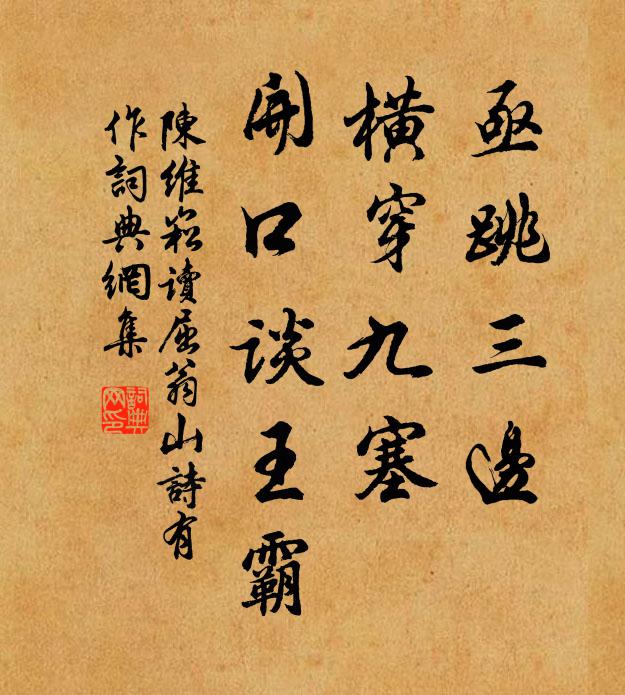 亟跳三邊
橫穿九塞
開口談王霸
陳維崧讀屈翁山詩有
作詞典網集
詞典網印